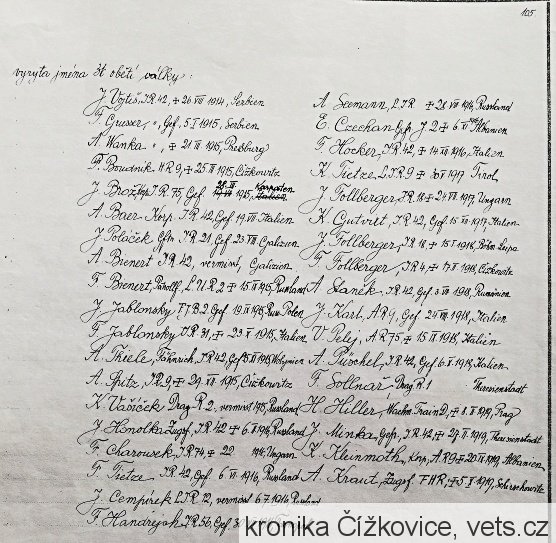 105
vyryta jména 34 obětí války:
J. Vojteš, IR 42, + 26 VIII 1914, Serbien
F. Grusser, „ , Gef. 5.I 1915, Serbien
A. Wanka „ , + 21 II 1915, Presburg
P. Boudnik HR 9, + 25 IV 1915, Čížkowitz
J. Brož, IR 75, Gef. 1915, Karpaten
A. Baer Korp IR 42, Gef. VII Italien
J. Poláček Gftr. IR 21, Gef. 23 VIII Galizien
A. Bienert IR 42, vermisst, Galizien
F. Bienert, LUR 2 + 15 1915, Russland
J. Jablonsky FJB 2 Gef. 19 II 1915, Russ Polen
F. Jablonsky IR 31, + 23 X 1915, Italien
A. Thiele, Fähnrich, IR 42, Gef. 1915, Wolynien
A. Putz IR 9 + 29 VII 1915, Čížkowitz
K. Vašíček Drag. R 2, vermisst 1915, Russland
J. Honolka Zugsf. IR 42 + 6 1916, Russland
F. Charousek IR 74, + 22 1916, Ungarn
F. Tietze IR 42, Gef. 6 1916, Russland
J. Cempírek LIR 12, vermisst 6.7.1916, Russland
F. Handrejch IR 56, Gef. 3
A. Seemann, LIR + 21 VII 1916, Russland
E. Czechan Gefr. J 2 + 6 II Albanien
F. Hocker, IR 42, + 14 VIII 1916, Italien
K. Tietze LIR 9 + 20 1917 Tirol
J. Follberger, IR 18 + 24 VII 1917, Ungarn
K. Gutvirt, IR 42, Gef. 15 VII 1917, Italien
J. Follberger, IR 18 + 15 I 1918, Böhm Leipa
F. Follberger, IR 4, + 17 II 1918, Čížkowitz
A. Staněk IR 42, Gef. 3 VII 1918, Rumänien
J. Kart, AR 9, Gef. 24 VIII 1918, Italien
V. Pelej, AR 75 + 15 1918, Italien
A. Püschel, IR 42, Gef. 6 X 1918, Italien
F. Sollnař, Drag R. 1 Theresienstadt
H. Hiller, Wachm. Train D, + 8. II 1919, Prag
J. Minka Gefr., IR 42, + 27 II 1919, Theresienstadt
K. Kleinmoth, Korp, AR 9 + 20 II 1919, Albanien
A. Kraut, Zugsf. FHR, + 5 X 1919,
kronika Čížkovice, vets.cz